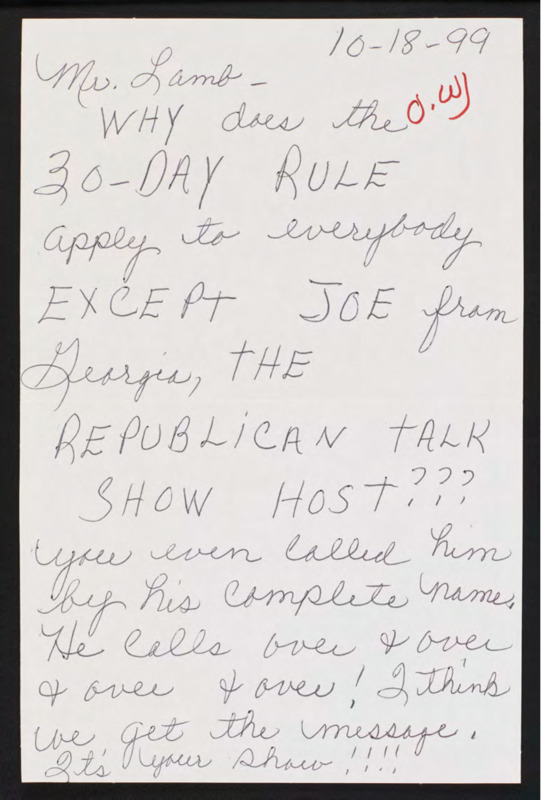 10-18-99
Mr. Lamb -
WHY does the
30-DAY RULE
apply to everybody
EXCEPT JOE from
Georgia, THE
REPUBLICAN TALK
SHOW HOST???
you even called him
by his complete name.
He calls over & over
& over & over! I think
we get the message.
It's your show!!!!